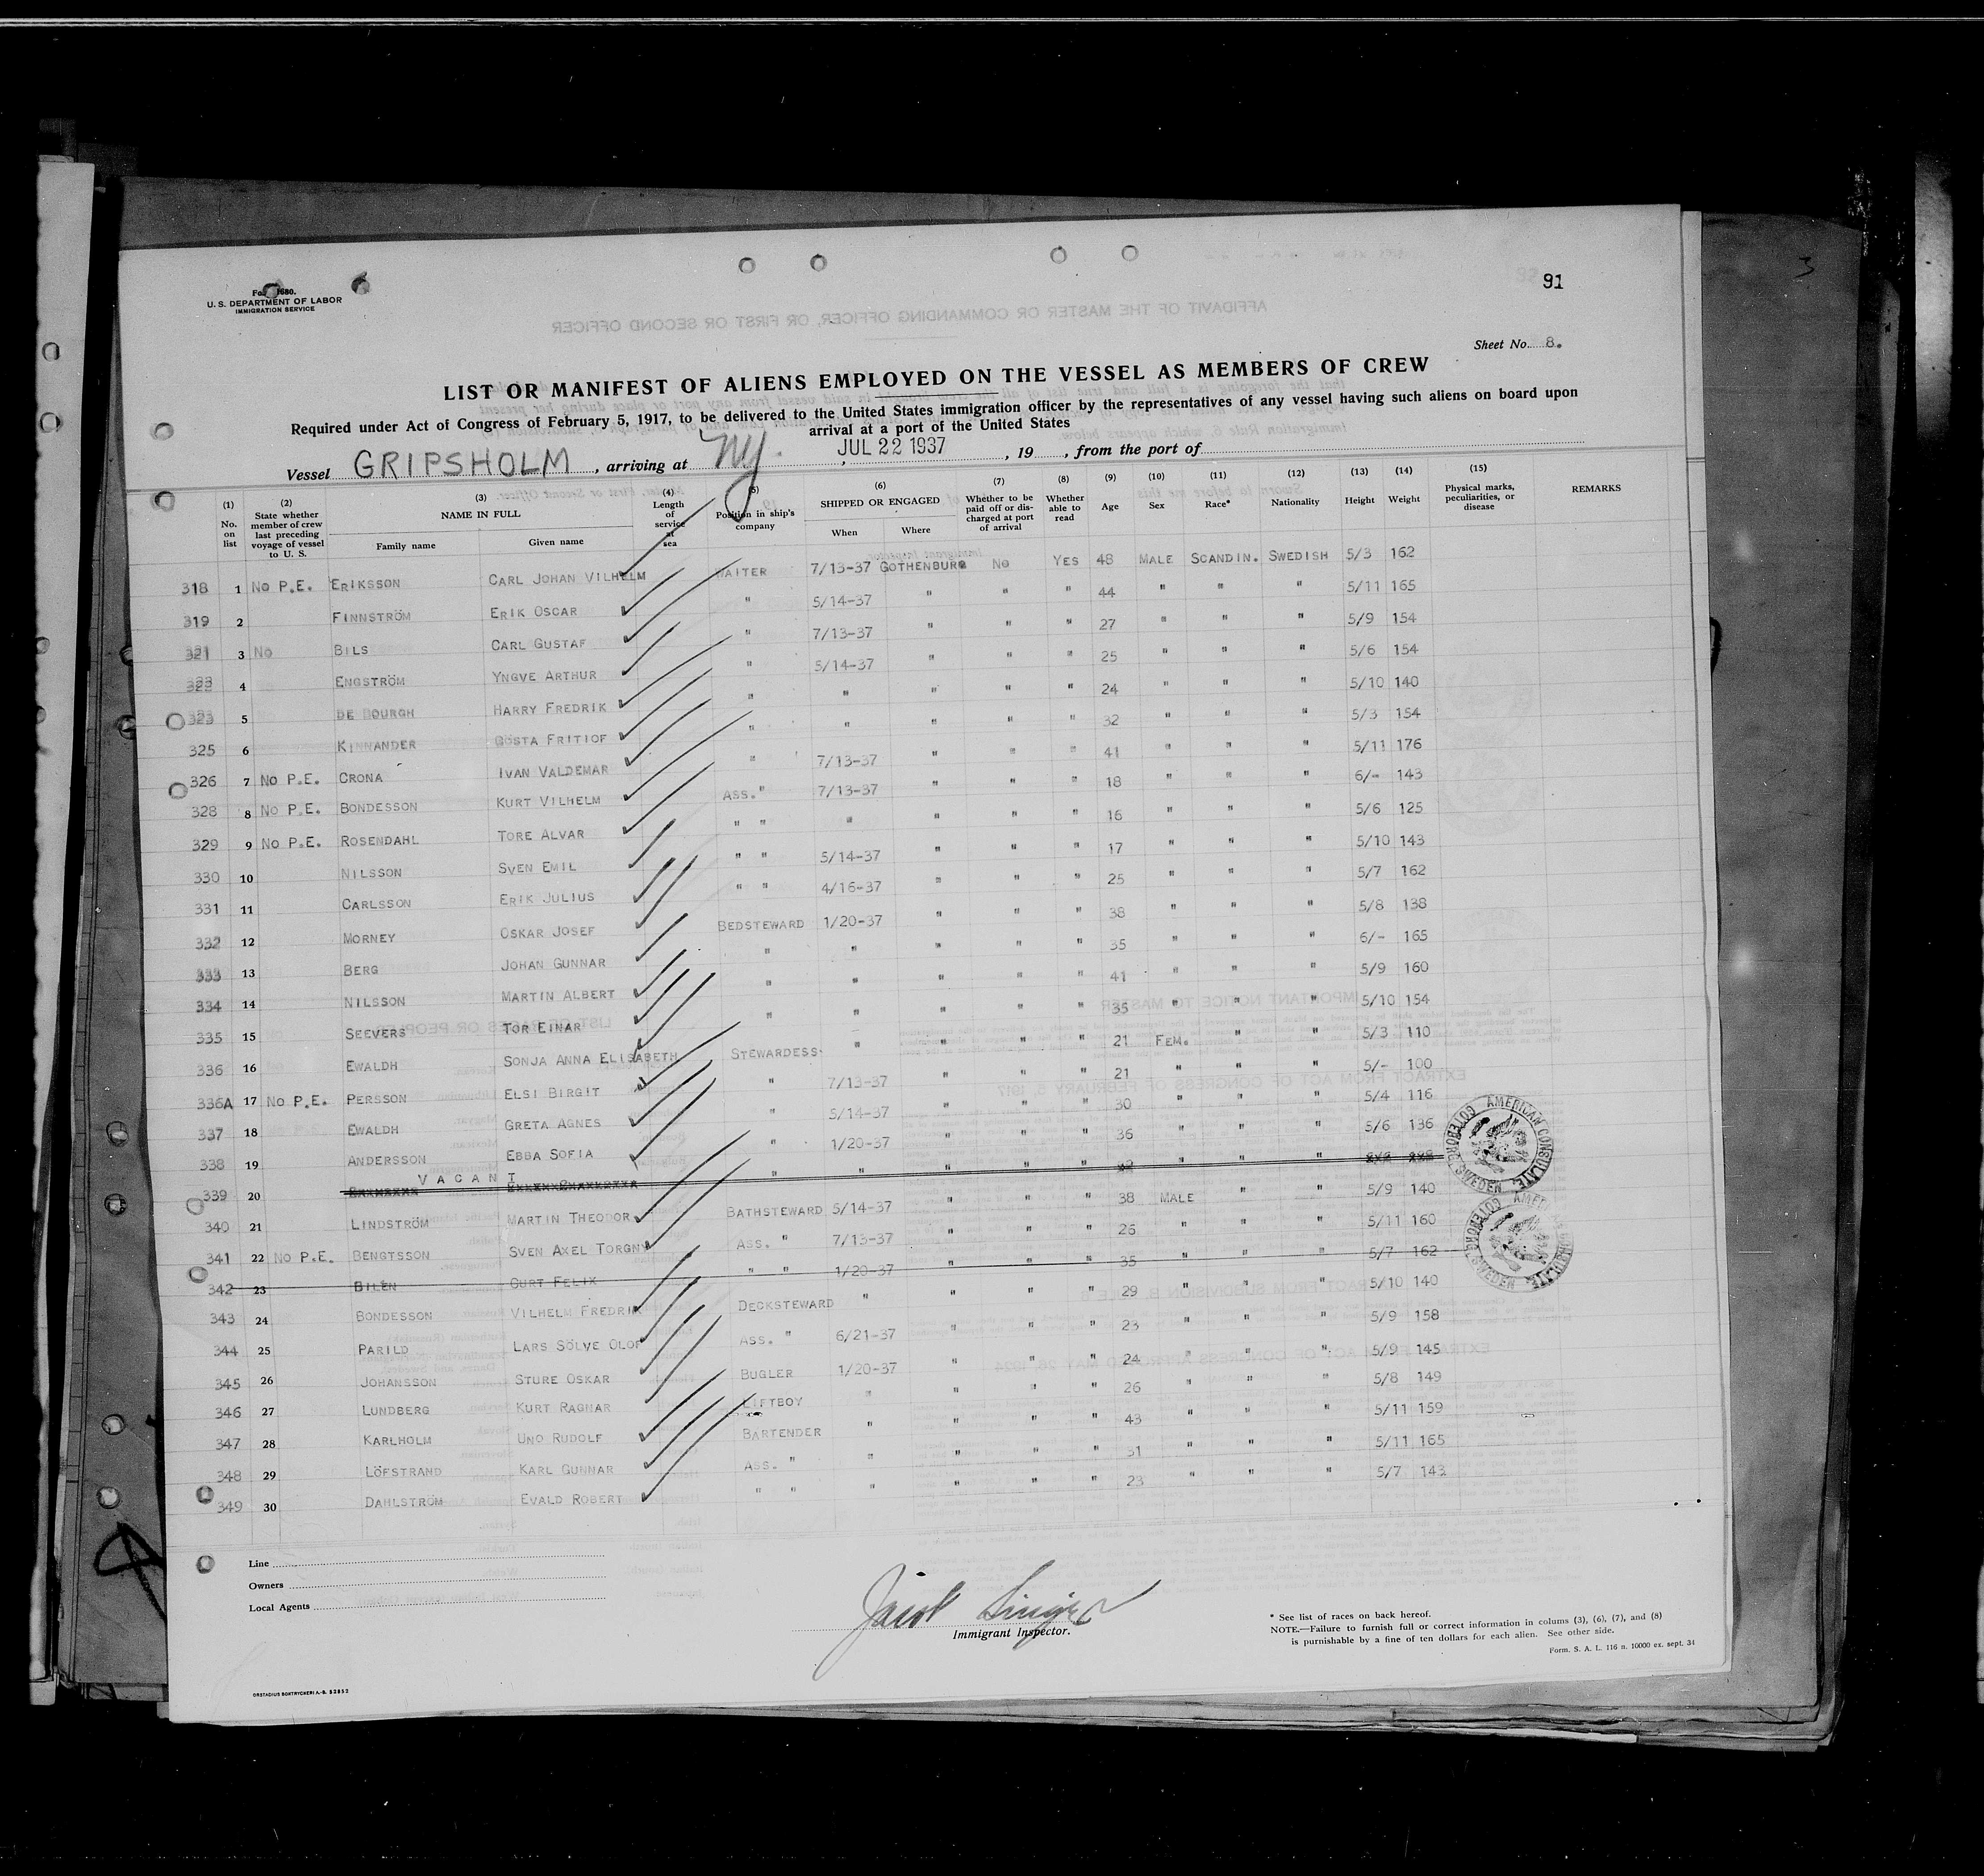 91
Form 1680.
U. S. DEPARTMENT OF LABOR
IMMIGRATION SERVICE
Sheet No. 8.
LIST OR MANIFEST OF ALIENS EMPLOYED ON THE VESSEL AS MEMBERS OF CREW
Required under Act of Congress of February 5, 1917, to be delivered to the United States immigration officer by the representatives of any vessel having such aliens on board upon
arrival at a port of the United States
Vessel GRIPSHOLM, arriving at NY. JUL 22 1937, 19, from the port of
(1) No. on list (2) State whether member of crew last preceding voyage of vessel to U. S. (3) NAME IN FULL Family name Given name (4) Length of service at sea (5) Position in ship's company (6) SHIPPED OR ENGAGED When Where (7) Whether to be paid off or discharged at port of arrival (8) Whether able to read (9) Age (10) Sex (11) Race* (12) Nationality (13) Height (14) Weight (15) Physical marks, peculiarities, or disease REMARKS
318 1 No P.E. ERIKSSON CARL JOHAN VILHELM WAITER 7/13-37 GOTHENBURG No YES 48 MALE SCANDIN. SWEDISH 5/3 162
319 2 FINNSTRÖM ERIK OSCAR " 5/14-37 " " " 44 " " " 5/11 165
321 3 No BILS CARL GUSTAF " 7/13-37 " " " 27 " " " 5/9 154
322 4 ENGSTRÖM YNGVE ARTHUR " 5/14-37 " " " 25 " " " 5/6 154
323 5 DE BOURGH HARRY FREDRIK " " " " " 24 " " " 5/10 140
325 6 KINNANDER GÖSTA FRITIOF " " " " " 32 " " " 5/3 154
326 7 No P.E. CRONA IVAN VALDEMAR " 7/13-37 " " " 41 " " " 5/11 176
328 8 No P.E. BONDESSON KURT VILHELM ASS. " 7/13-37 " " " 18 " " " 6/- 143
329 9 No P.E. ROSENDAHL TORE ALVAR " " " " " " 16 " " " 5/6 125
330 10 NILSSON SVEN EMIL " " 5/14-37 " " " 17 " " " 5/10 143
331 11 CARLSSON ERIK JULIUS " " 4/16-37 " " " 25 " " " 5/7 162
332 12 MORNEY OSKAR JOSEF BEDSTEWARD 1/20-37 " " " 38 " " " 5/8 138
333 13 BERG JOHAN GUNNAR " " " " " 35 " " " 6/- 165
334 14 NILSSON MARTIN ALBERT " " " " " 41 " " " 5/9 160
335 15 SEEVERS TOR EINAR " " " " " 35 " " " 5/10 154
336 16 EWALDH SONJA ANNA ELISABETH STEWARDESS " " " " 21 FEM. " " 5/3 110
336A 17 No P.E. PERSSON ELSI BIRGIT " 7/13-37 " " " 21 " " " 5/- 100
337 18 EWALDH GRETA AGNES " 5/14-37 " " " 30 " " " 5/4 116
338 19 ANDERSSON EBBA SOFIA " 1/20-37 " " " 36 " " " 5/6 136
339 20 VACANT " " " " " " " "
340 21 LINDSTRÖM MARTIN THEODOR BATHSTEWARD 5/14-37 " " " 38 MALE " " 5/9 140
341 22 No P.E. BENGTSSON SVEN AXEL TORGNY ASS. " 7/13-37 " " " 26 " " " 5/11 160
342 23 BILÉN CURT FELIX " " 1/20-37 " " " 35 " " " 5/7 162
343 24 BONDESSON VILHELM FREDRIK DECKSTEWARD " " " " 29 " " " 5/10 140
344 25 PARILD LARS SÖLVE OLOF ASS. " 6/21-37 " " " 23 " " " 5/9 158
345 26 JOHANSSON STURE OSKAR BUGLER 1/20-37 " " " 24 " " " 5/9 145
346 27 LUNDBERG KURT RAGNAR LIFTBOY " " " " 26 " " " 5/8 149
347 28 KARLHOLM UNO RUDOLF BARTENDER " " " " 43 " " " 5/11 159
348 29 LÖFSTRAND KARL GUNNAR ASS. " " " " " 31 " " " 5/11 165
349 30 DAHLSTRÖM EVALD ROBERT " " " " " " 23 " " " 5/7 143
AMERICAN CONSULATE. GOTEBORG, SWEDEN
AMERICAN CONSULATE. GOTEBORG, SWEDEN
Line
Owners
Local Agents
Jacob Singer
Immigrant Inspector.
* See list of races on back hereof.
NOTE.—Failure to furnish full or correct information in colums (3), (6), (7), and (8)
is purnishable by a fine of ten dollars for each alien. See other side.
Form. S. A. L. 116 n. 10000 ex. sept. 34
ORSTADIUS BOKTRYCKERI A.-B. 52852